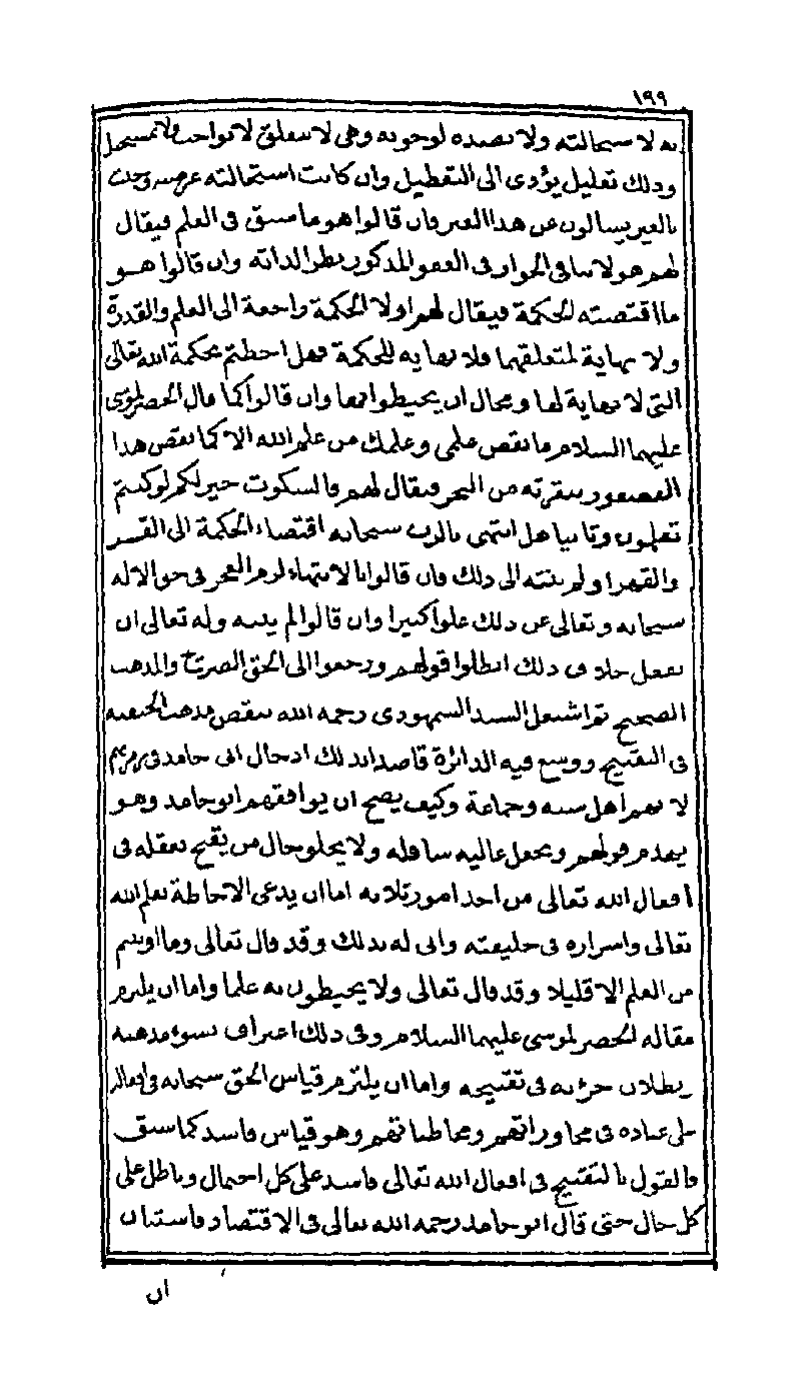 ١٩٩
به لاستحالته ولا بضده لوجوبه وهي لا تتعلق لا بواجب ولا بمستحيل
وذلك تعليل يؤدى الى التعطيل وان كانت استحالته عرضية وجبت
بالغير يسالون عن هذا الغير فان قالوا هو ما سبق فى العلم فيقال
لهم هو لا ينافى الجواز فى العفو المذكور نظرا لذاته وان قالوا هو
ما اقتضته الحكمة فيقال لهم اولا الحكمة راجعة الى العلم والقدرة
ولا نهاية لمتعلقهما فلا نهاية للحكمة فهل احطتم بحكمة الله تعالى
التى لا نهاية لها ومحال ان يحيطوا بها وان قالوا كما قال الخضر لموسى
عليهما السلام ما نقص علمى وعلمك من علم الله الا كما نقص هذا
العصفور بنقرته من البحر فيقال لهم فالسكوت خير لكم لو كنتم
تعلمون وثانيا هل انتهى بالرب سبحانه اقتضاء الحكمة الى القسر
والقهر او لم ينته الى ذلك فان قالوا بالانتهاء لزم العجز فى حق الاله
سبحانه وتعالى عن ذلك علوا كبيرا وان قالوا لم ينته وله تعالى ان
يفعل خلاف ذلك ابطلوا قولهم ورجعوا الى الحق الصريح والمذهب
الصحيح ثم اشتغل السيد السمهودى رحمه الله بنقض مذهب الحنفية
فى التقبيح ووسع فيه الدائرة قاصدا بذلك ادخال ابى حامد فى زمرتهم
لانهم اهل سنة وجماعة وكيف يصح ان يوافقهم ابو حامد وهو
يهدم قولهم ويجعل عاليه سافله ولا يخلو حال من يقبح بعقله فى
افعال الله تعالى من احد امور ثلاثه اما ان يدعى الاحاطة بعلم الله
تعالى واسراره فى خليقته وانى له بذلك وقد قال تعالى وما اوتيتم
من العلم الا قليلا وقد قال تعالى ولا يحيطون به علما واما ان يلتزم
مقاله الخضر لموسى عليهما السلام وفى ذلك اعتراف بسوء مذهبه
وبطلان جرئه فى تقبيحه واما ان يلتزم قياس الحق سبحانه فى افعاله
على عباده فى محاوراتهم ومخاطباتهم وهو قياس فاسد كما سبق
فالقول بالتقبيح فى افعال الله تعالى فاسد على كل احتمال وباطل على
كل حال حتى قال ابو حامد رحمه الله تعالى فى الاقتصاد فاستبان
ان